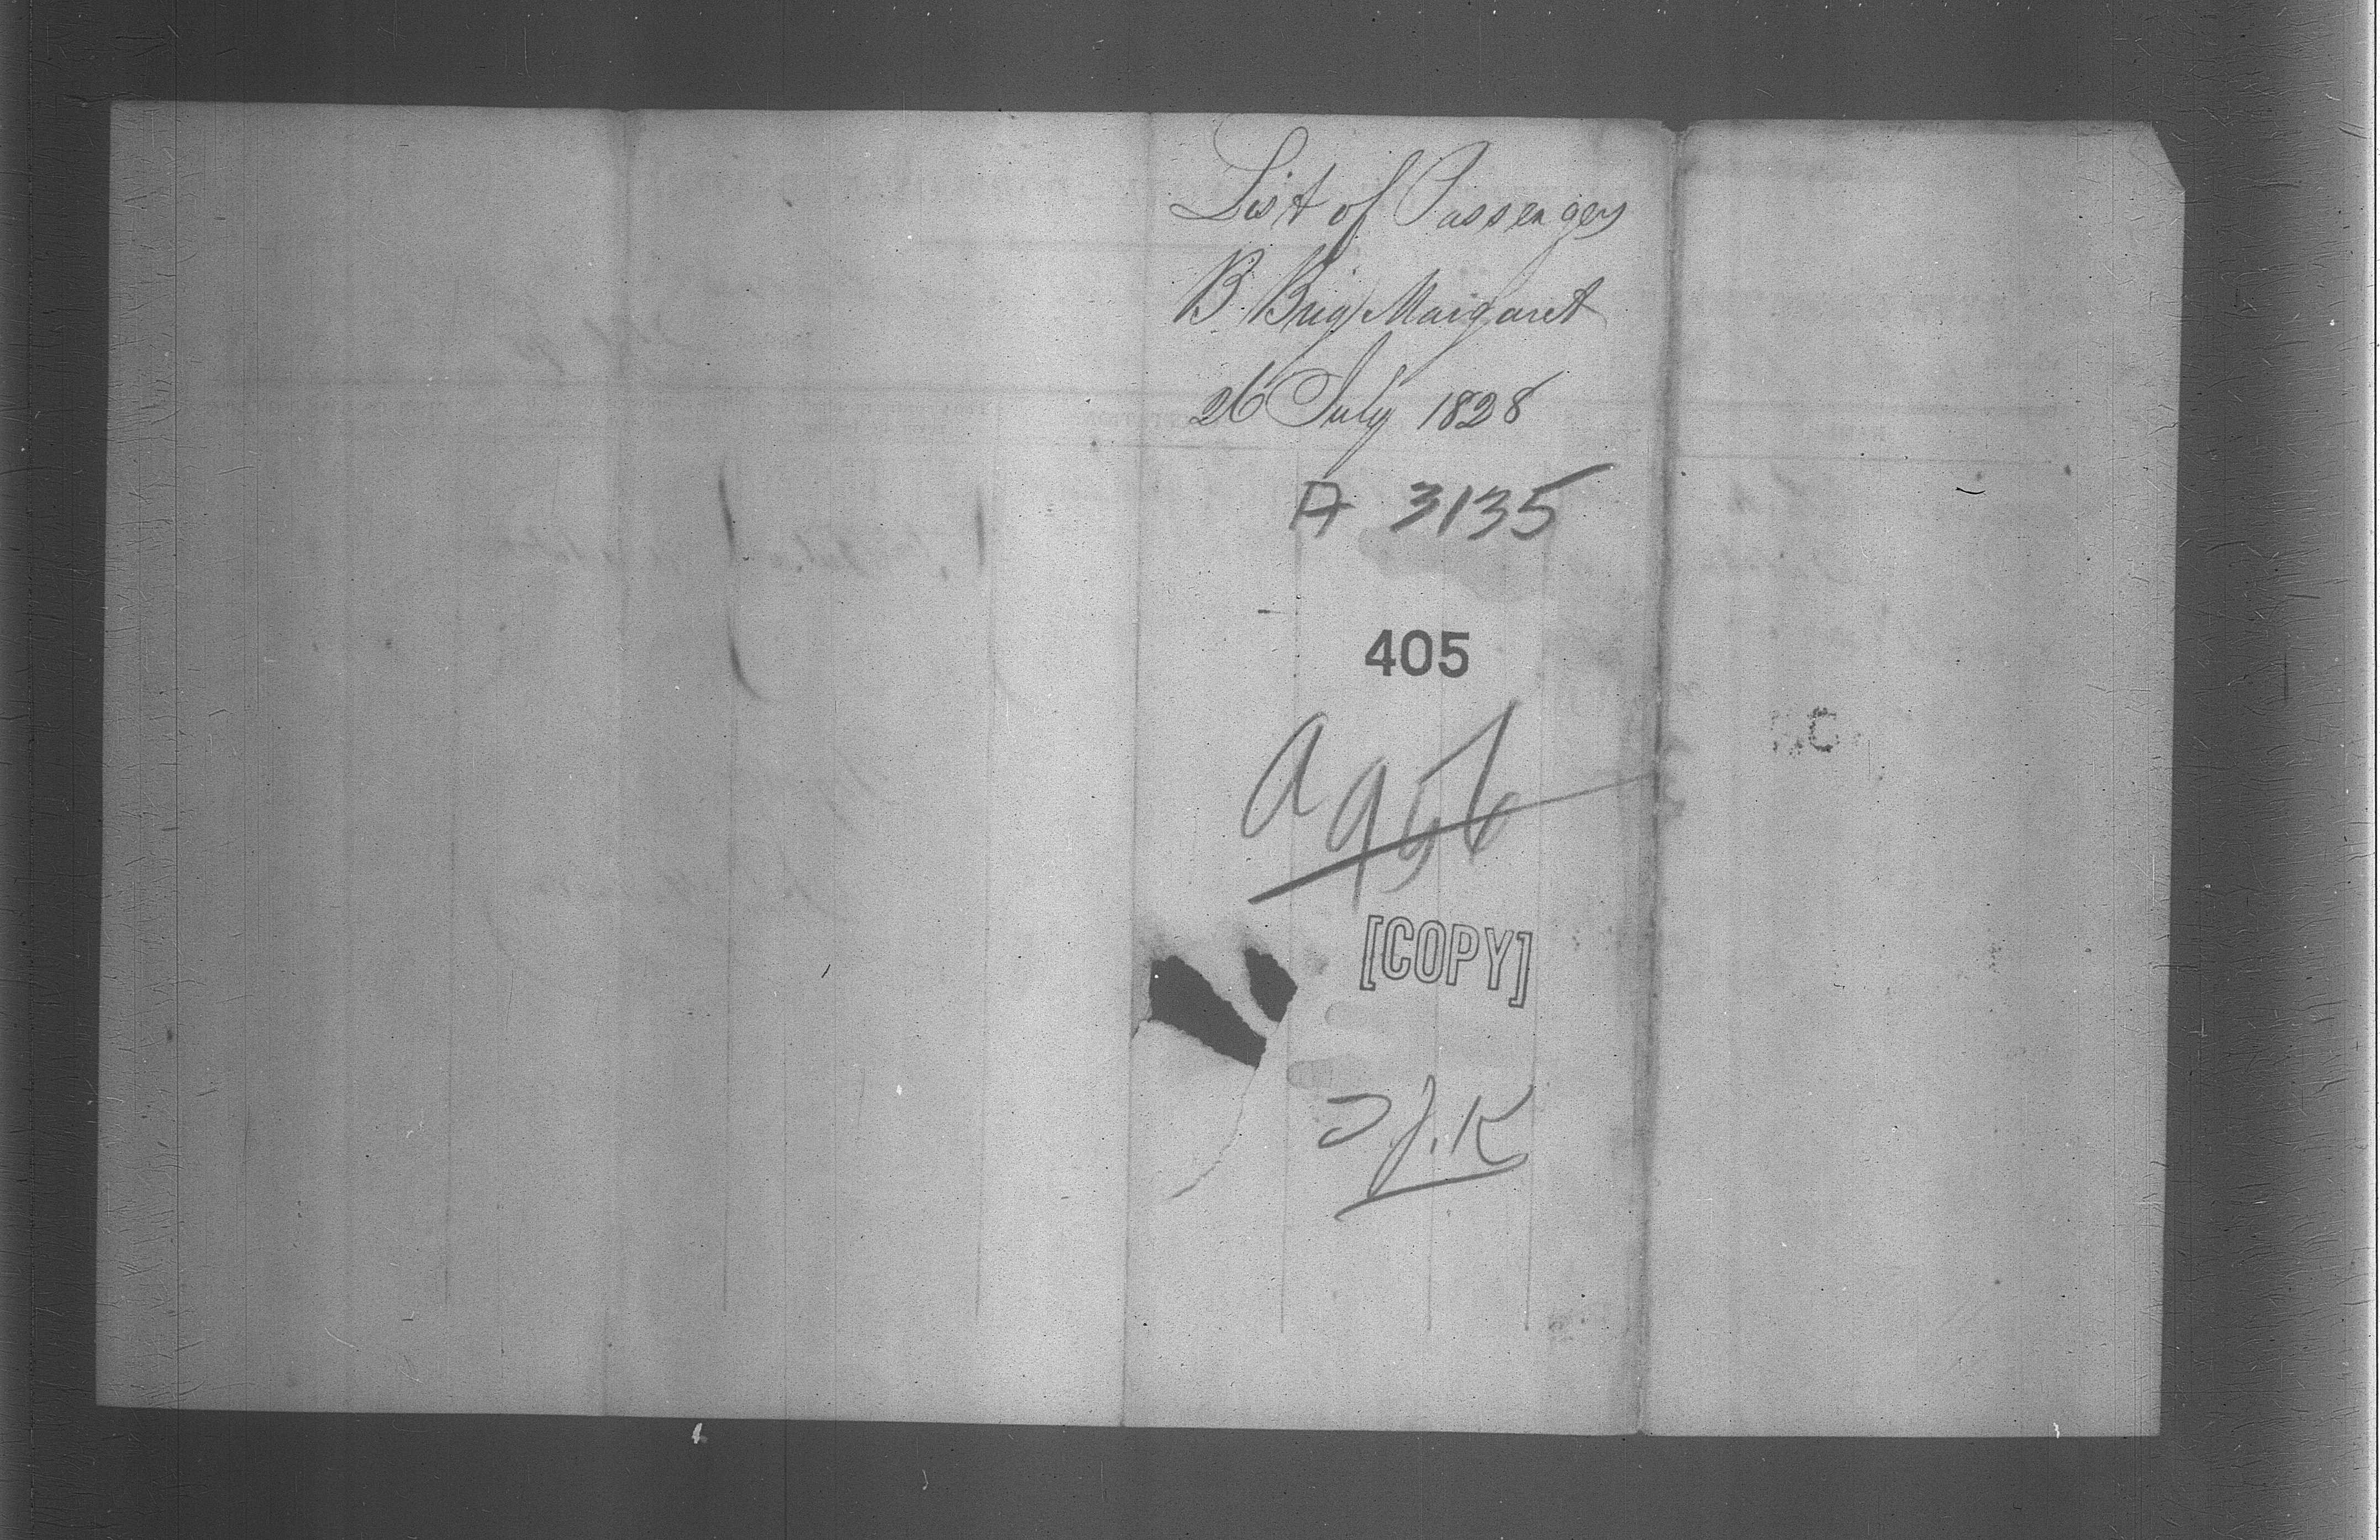 List of Passengers
B Brig Margaret
26 July 1828
A 3135
405
a 956
[COPY]
J.K